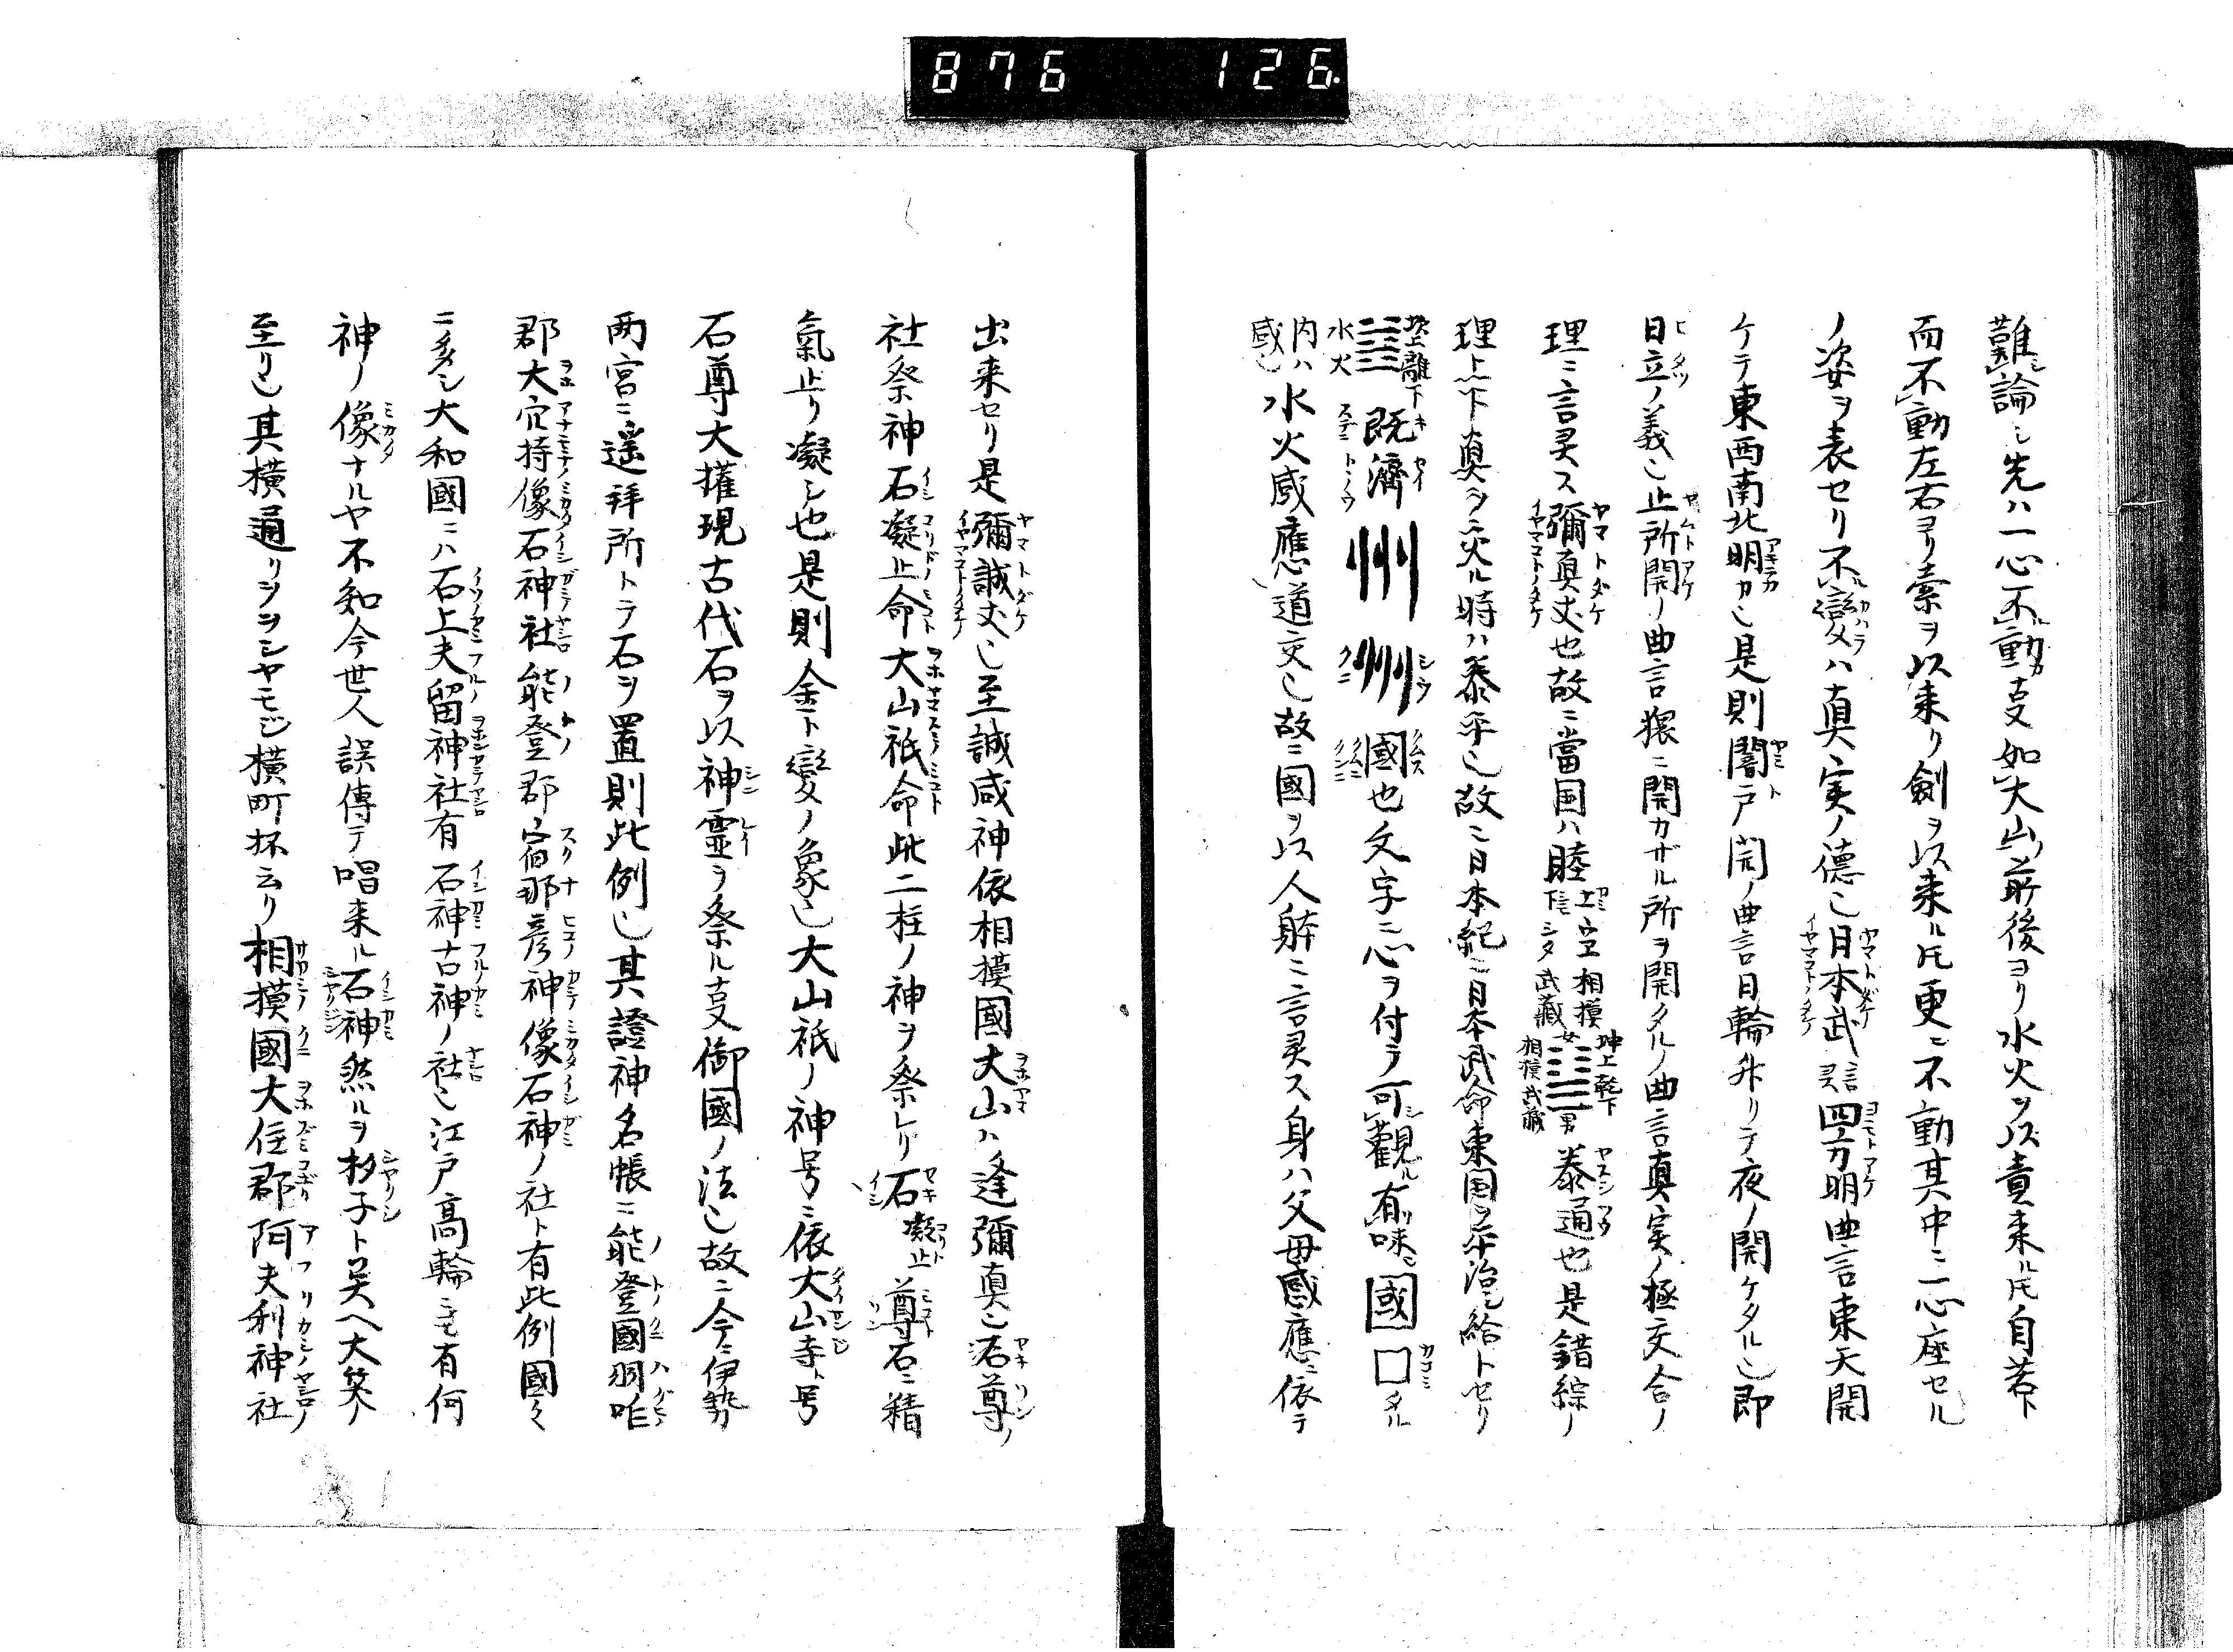 876 126.
難シ論シ先ハ一心不動カ支如大山前後ヨリ水火ヲ以責来ル氏自若ト
而不動左右ヨリ索ヲ以来リ劍ヲ以来ル氏更ニ不動其中ニ一心座セル
ノ姿ヲ表セリ不變ハ真実ノ德也日本武四方明曲言東天開
ケテ東西南北明カ也是則闇戸開ノ曲言日輪舛リテ夜ノ開ケタル也即
日立ノ義也止所開ノ曲言猥ニ開カザル所ヲ開クルノ曲言真実ノ極交合ノ
理ニ言灵ス彌真丈也故ニ當国ハ睦相摸武藏坤上乾下泰通也是錯綜ノ
理上下真ヲ交ル時ハ泰平也故ニ日本紀ニ日本武命東国ヲ平治シ給トセリ
坎上離下水火既濟州州國也文字ニ心ヲ付テ可觀有味國囗タル
内ハ水火感應道交也故ニ國ヲ以人躰ニ言灵ス身ハ父母感應ニ依テ
出来セリ是彌誠丈也至誠咸神依相摸國大山ハ逢彌真也石尊ノ
社祭神石凝止命大山祇命此二柱ノ神ヲ祭レリ石凝止尊石ニ精
氣止リ凝シ也是則金ト變ノ象也大山祇ノ神号ニ依大山寺ト号
石尊大權現古代石ヲ以神靈ヲ祭ル支御國ノ法也故ニ今ニ伊勢
両宮ニ遥拜所トテ石ヲ置則此例也其證神名帳ニ能登國羽咋
郡大穴持像石神社能登郡宿那彦神像石神ノ社ト有此例國々
ニ多シ大和國ニハ石上夫留神社有石神古神ノ社也江戸高輪ニモ有何
神ノ像ナルヤ不知今世人誤傳テ唱来ル石神然ルヲ杓子ト吴ヘ大笑ノ
至リ也其横通リヲヲシヤモジ横町抔云リ相摸國大住郡阿夫利神社